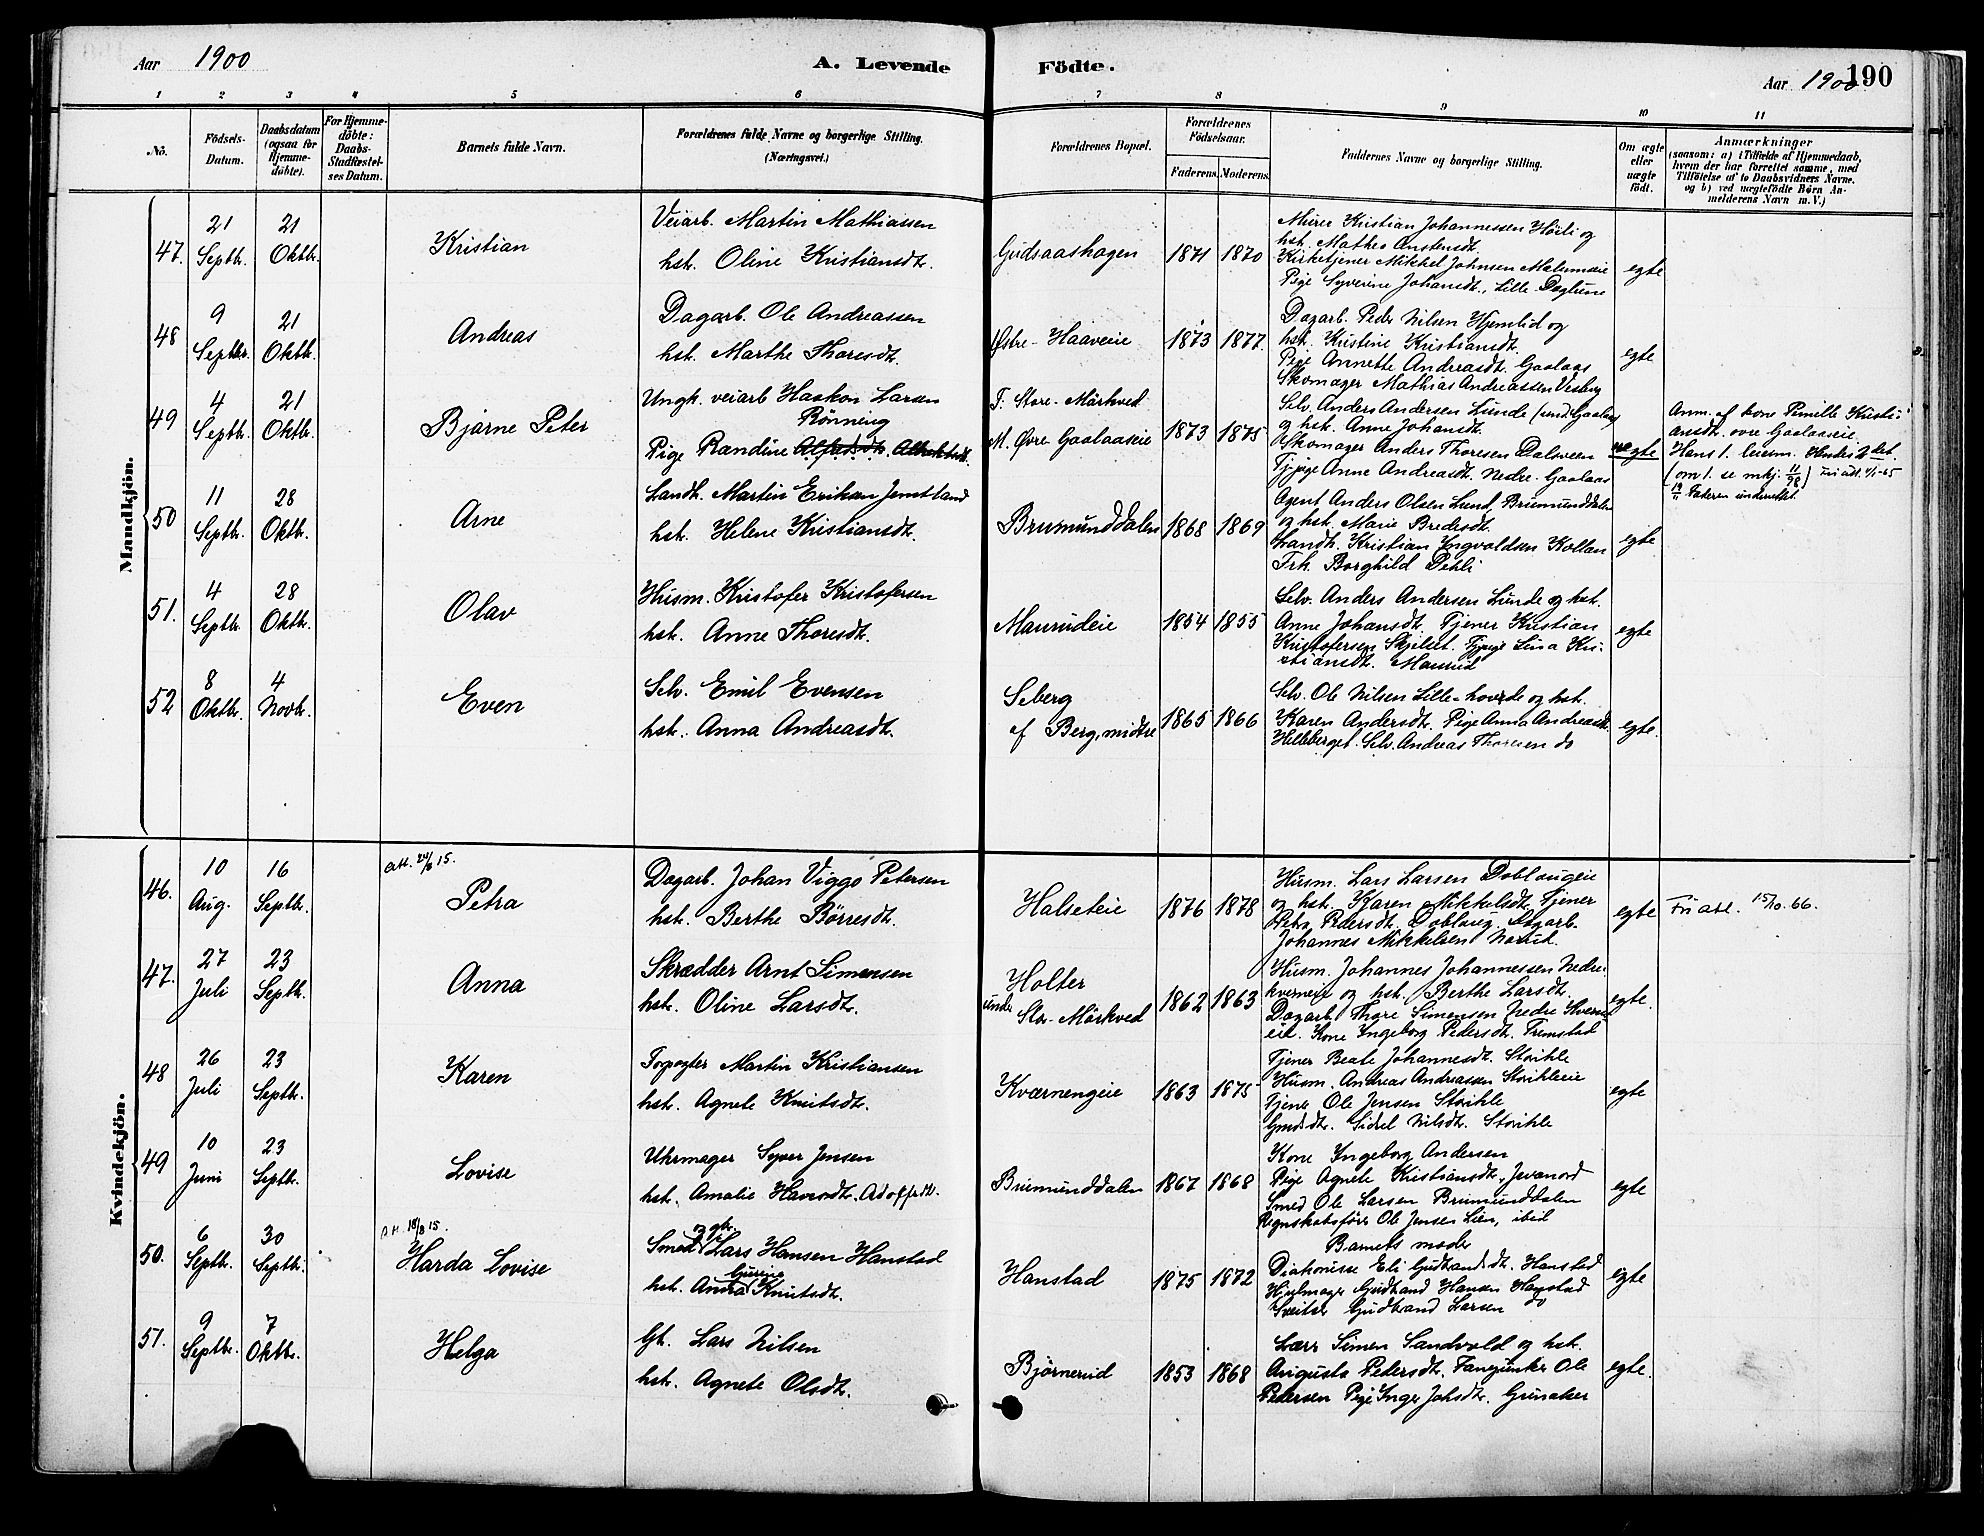 Aar 1900
A. Levende Födte.
Aar 1900
190
1 2 3 4 5 6 7 8 9 10 11
No.
Födsels-Datum.
Daabsdatum (ogsaa for Hjemme-döbte).
For Hjemme-döbte: Daabs-Stadfæstel-ses Datum.
Barnets fulde Navn.
Forældrenes fulde Navne og borgerlige Stilling. (Næringsvei.)
Forældrenes Bopæl.
Forældrenes Födselsaar.
Faderens. Moderens.
Faddernes Navne og borgerlige Stilling.
Om ægte eller uægte födt.
Anmærkninger
(saasom: a) i Tilfælde af Hjemmedaab,
hvem der har forrettet samme, med
Tilföielse af to Daabsvidners Navne.
og b) ved uægtefödte Börn An-
melderens Navn m.V.)
Mandkjön.
47. 21 Septbr. 21 Oktbr.
Kristian
Veiarb. Martin Mathiassen
hst. Oline Kristiansdt.
Gudsaashagen 1871 1870
Murer Kristian Johannessen Høili og
hst. Mathea Anstensdt.
Kirketjener Mikkel Johnsen
Pige Syverine Johansdt., Lille-
egte
48 9 Septbr. 21 Oktbr.
Andreas
Dagarb. Ole Andreassen
hst. Marthe Thoresdt.
Østre-Haaveie 1873 1877.
Dagarb. Peder Nilsen Hjemlid og
hst. Kristine Kristiansdt.
Pige Annette Andreasdt. Gaalaas
Skomager Mathias Andreassen Vesberg
egte
49 4 Septbr. 21 Oktbr.
Bjarne Peter
Ungk. veiarb Haakon Larsen
Rönning
Pige Randine Alfredsdt. Albrektsdt.
F: Store-Mörkved
M. Øvre Gaalaaseie 1873 1875
Selv. Anders Andersen Lunde (und. Gaalaas)
og hst. Anne Johansdt.
Skomager Anders Thoresen Dalsveen
Tj.pige Anne Andreasdt. Nedre-Gaalaas
uegte
Anm. af kone Pernille Kristi-
ansdt. øvre Gaalaaseie.
Hans 1. leierm. Hendes 2det.
(om 1. se mkj. 11/98)
Faderen underrettet
50 11 Septbr. 28 Oktbr.
Arne
Landh. Martin Eriksen Jemtland
hst. Helene Kristiansdt.
Brumunddalen 1868 1869
Agent Anders Olsen Lund, Brumunddalen
og hst. Marie Bredesdt.
Landh. Kristian Ingvoldsen Kollan
Frk. Borghild Dehli
egte
51. 4 Septbr. 28 Oktbr.
Olav
Husm. Kristofer Kristofersen
hst. Anne Thoresdt.
Maurudeie 1854 1855
Selv. Anders Andersen Lunde og hst.
Anne Johansdt. Tjener Kristian
Kristofersen Skjelset. Tj.pige Lina Kri-
stiansdt. Maurud
egte
52 8 Oktbr. 4 Novbr.
Even
Selv. Emil Evensen
hst. Anna Andreasdt.
Seberg
af Berg, midtre 1865 1866
Selv. Ole Nilsen Lille-hovde og hst.
Karen Andersdt. Pige Anna Andreasdt.
Helleberget. Selv. Andreas Thoresen do
egte.
Kvindekjön.
46. 10 Aug. 16 Septbr.
att. 24/8 15.
Petra
Dagarb. Johan Viggo Petersen
hst. Berthe Börresdt.
Halseteie 1876 1878
Husm. Lars Larsen Doblougeie
og hst. Karen Mikkelsdt. Tjener
Petra Pedersdt. Doblaug. Dagarb.
Johannes Mikkelsen Narud.
egte
Fri att. 15/10.66.
47. 27 Juli 23 Septbr.
Anna
Skrædder Arnt Simensen
hst. Oline Larsdt.
Holter
under Stor-Mörkved 1862 1863
Husm. Johannes Johannessen Nedre-
kverneie og hst. Berthe Larsdt.
Dagarb. Thore Simensen Nedre Kvern-
eie. Kone Ingeborg Pedersdt. Fremstad
egte.
48 26 Juli 23 Septbr.
Karen
Torpagter Martin Kristiansen
hst. Agnete Knutsdt.
Kværnengeie 1863 1875
Tjener Beate Johannesdt. Storihle
Husm. Andreas Andreassen Storihleie
Tjener Ole Jensen Storihle
Gmdsdt. Sidsel Nilsdt. Storihle
egte
49 10 Juni 23 Septbr.
Lovise
Uhrmager Syver Jensen
hst. Amalie Havordt. Adolfsdt.
Brumunddalen 1867 1868
Kone Ingeborg Andersen
Pige Agnete Kristiansdt., Jevanord
Smed Ole Larsen Brumunddalen
Regnskabsfører Ole Jensen Lien, ibid
egte
50. 6 Septbr. 30 Septbr.
att. 18/8 15.
Harda Lovise
og gbr.
Smed Lars Hansen Hanstad
Gurine
hst. Anna Knutsdt.
Hanstad 1875 1872
Barnets moder
Diakonisse Eli Gudbrandsdt. Hanstad
Hjulmager Gudbrand Hansen Hanstad
Sveitser Gudbrand Larsen do
egte
51. 9 Septbr. 7 Oktbr.
Helga
Gb. Lars Nilsen
hst. Agnete Olsdt.
Bjørnerud 1853 1868
Lærer Simen Sandvold og hst.
Augusta Pedersdt. Fanejunker Ole
Pedersen Pige Inger Johsdt. Grunaker
egte.